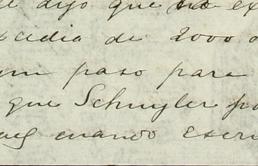 e dijo que no ex
xcedia de 2000 o
un paso para
que Schuyler po
cuando escri